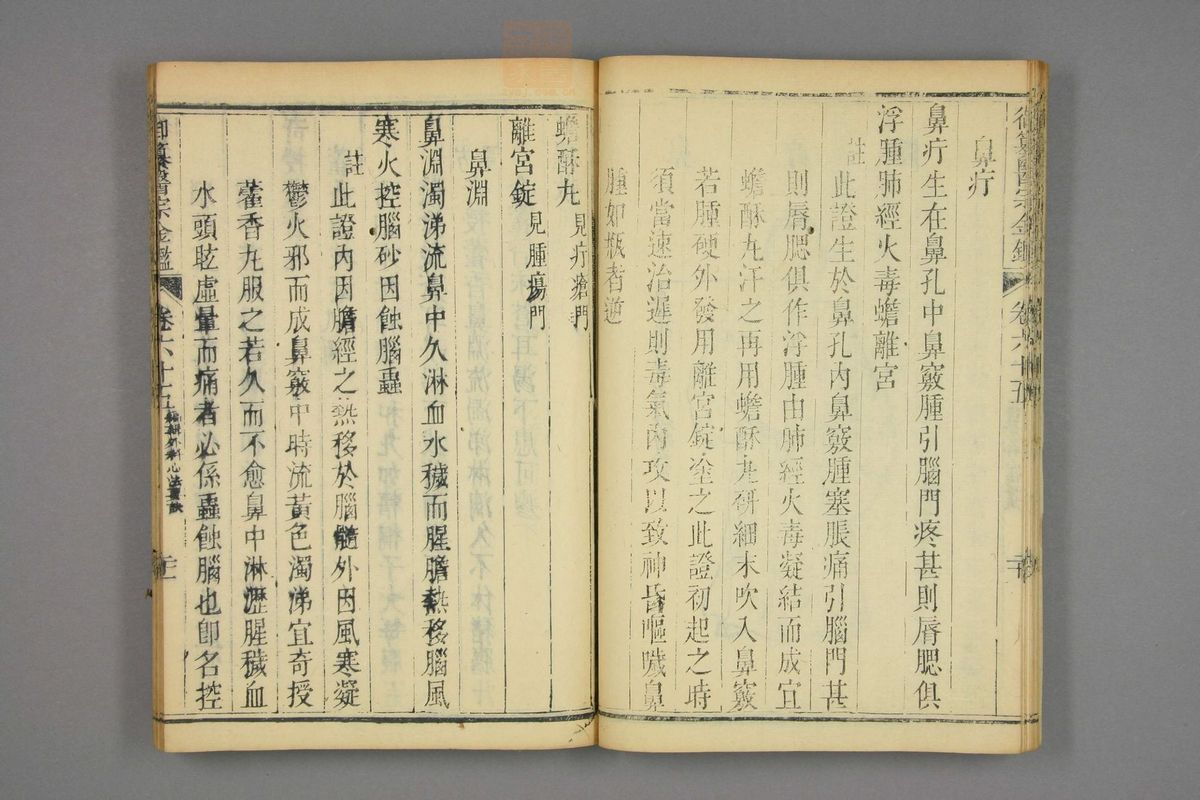 御纂醫宗金鑑 卷六十五
鼻疔
鼻疔生在鼻孔中鼻竅腫引腦門疼甚則脣腮俱
浮腫肺經火毒蟾離宮
註
此證生於鼻孔內鼻竅腫塞脹痛引腦門甚
則脣腮俱作浮腫由肺經火毒凝結而成宜
蟾酥丸汗之再用蟾酥丸研細末吹入鼻竅
若腫硬外發用離宮錠塗之此證初起之時
須當速治遲則毒氣內攻以致神昏嘔噦鼻
腫如瓶者逆
蟾酥丸 見疔瘡門
離宮錠 見腫瘍門
鼻淵
鼻淵濁涕流鼻中久淋血水穢而腥膽熱移腦風
寒火控腦砂因蝕腦蟲
註
此證內因膽經之熱移於腦髓外因風寒凝
鬱火邪而成鼻竅中時流黃色濁涕宜奇授
藿香丸服之若久而不愈鼻中淋瀝腥穢血
水頭眩虛暈而痛者必係蟲蝕腦也卽名控
御纂醫宗金鑑 卷六十五 編輯外科心法要訣